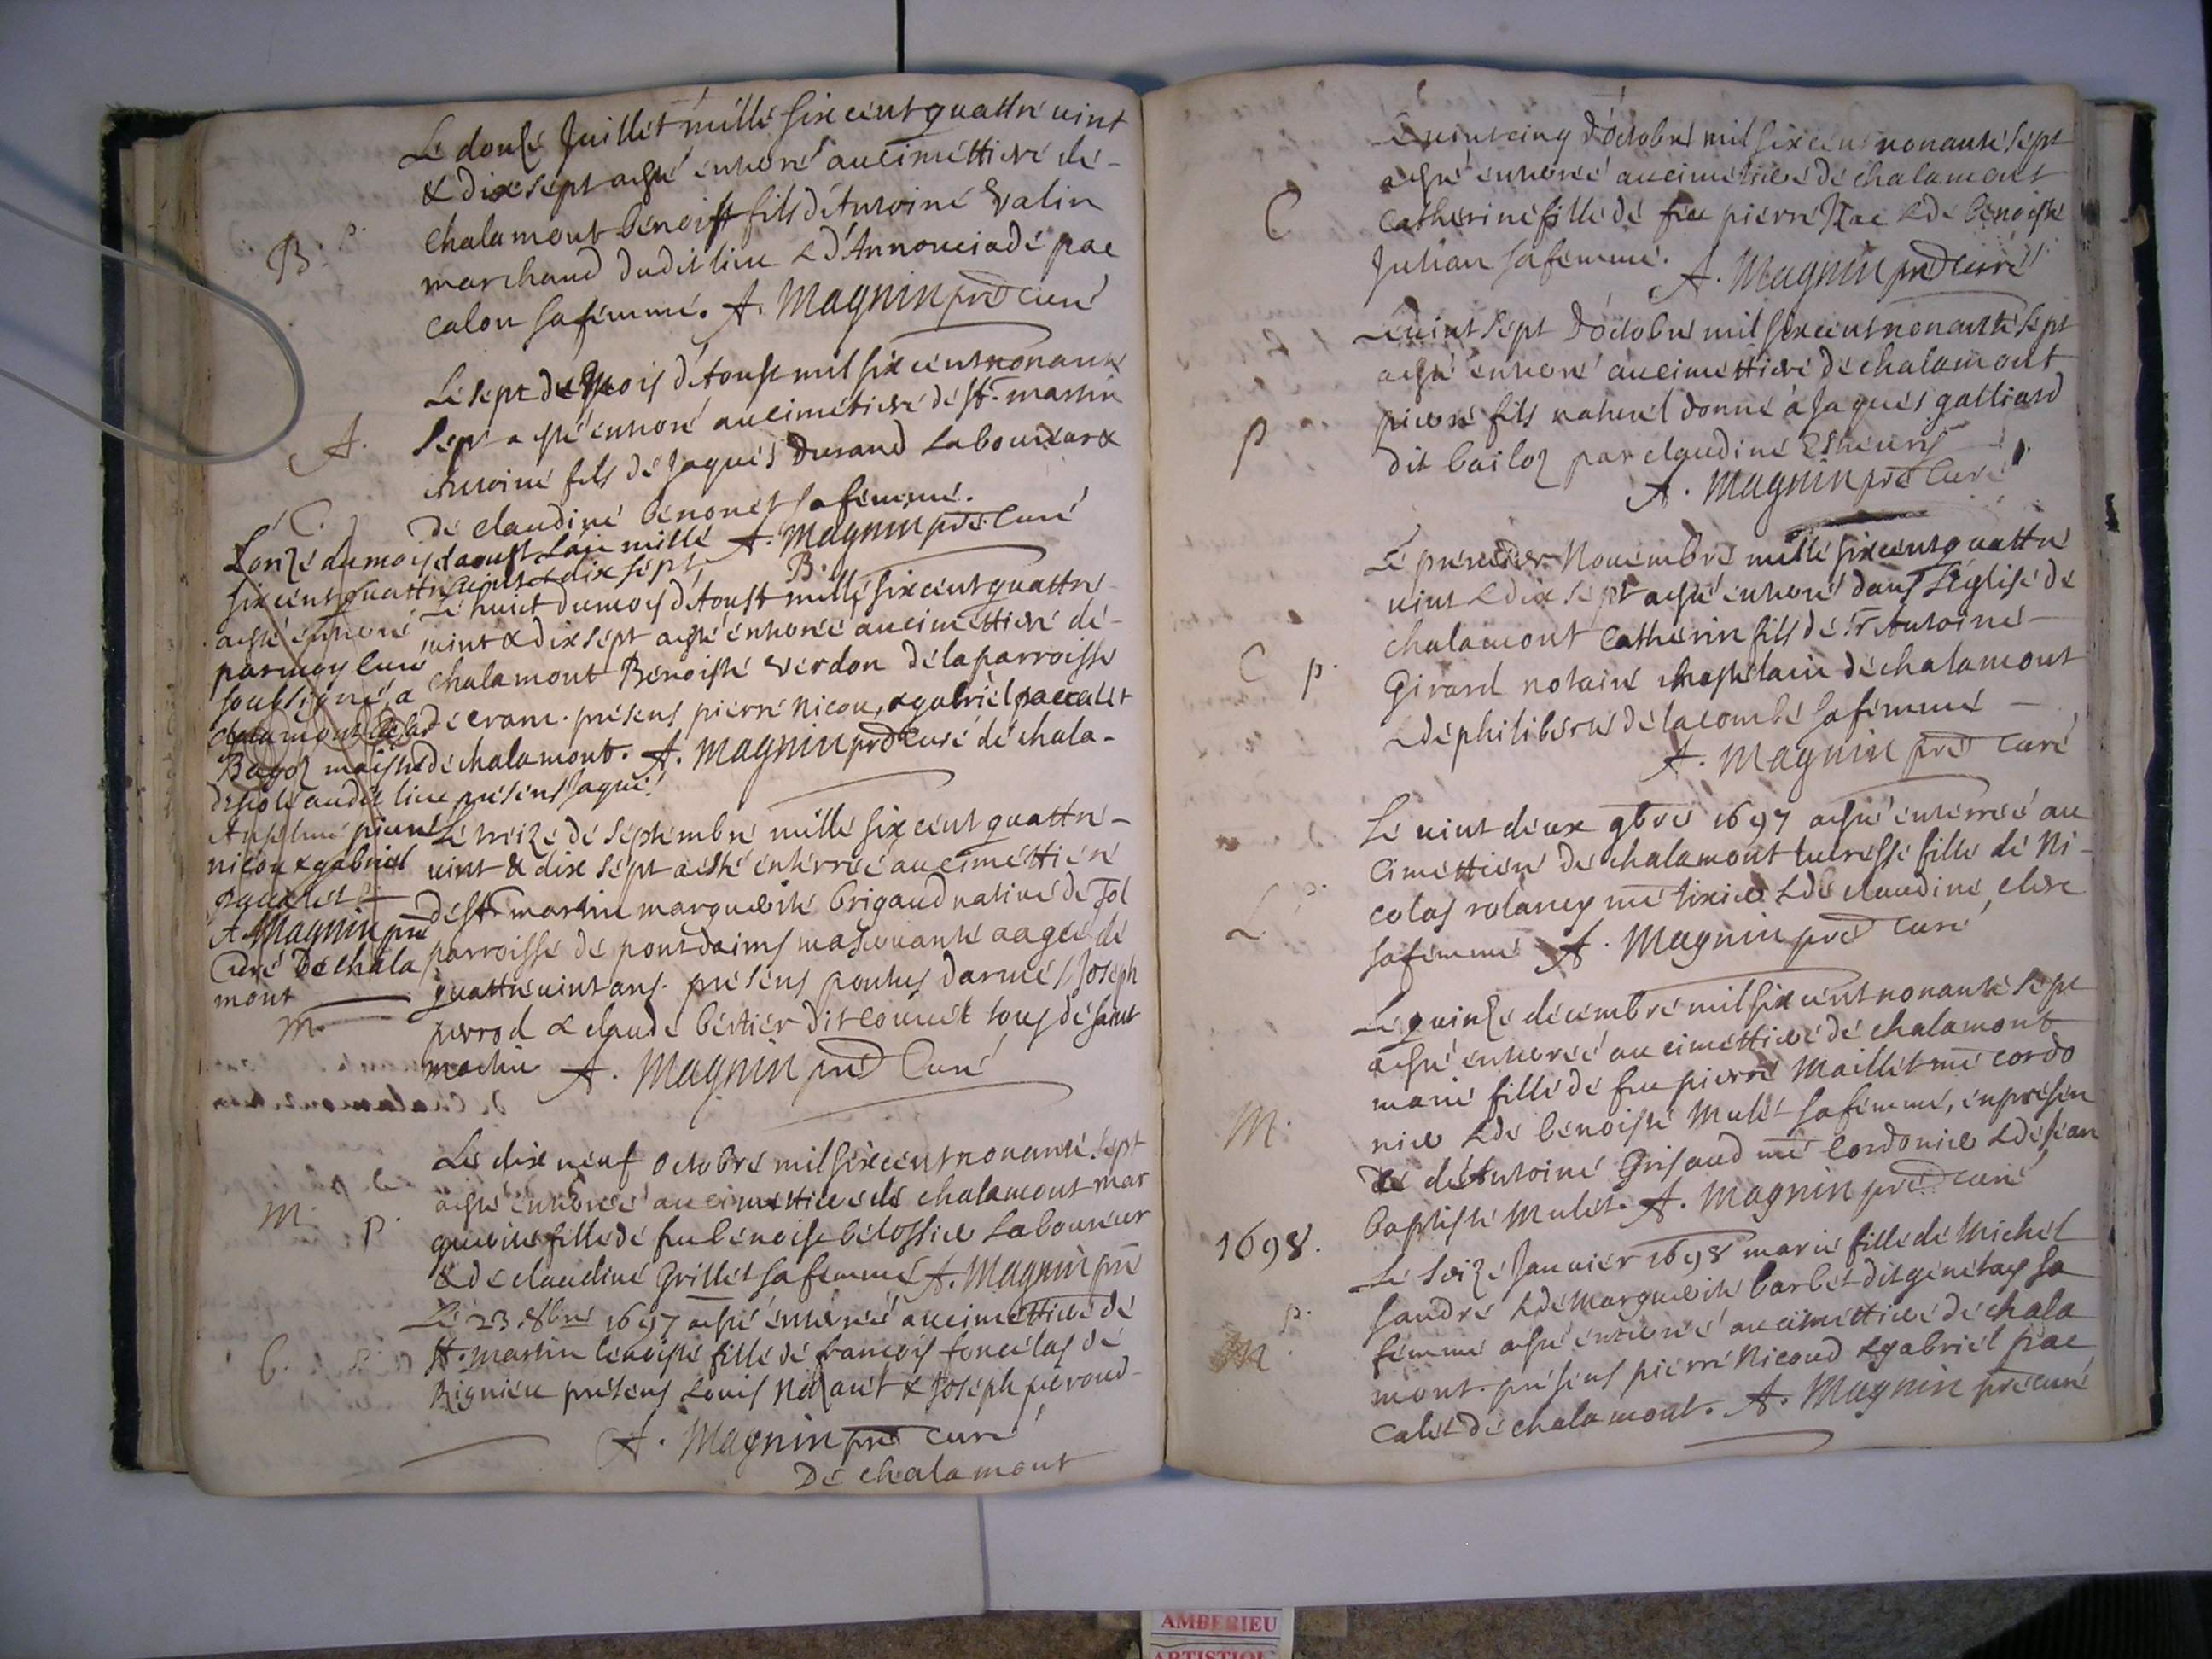 Le douze Juillet mille six cent quattre vint
& dix sept a esté enteré au cimettiere de
B p.
chalamont benoist fils d'Antoine Valin
marchand dudit lieu & d'Annonciade pac
calon sa femme. A. Magnin pre curé
Le sept du mois d'Aoust mil six cent nonante
A.
sept a esté enteré au cimetiere de st. martin
Antoine fils de Jaques Durand Laboureur &
de claudine benonet sa femme.
A. Magnin pre. Curé
C.
Lonze du mois d'aoust L'an mille
six cent quattre vint & dix sept
a esté enterré
par moy Curé
soubsigné a
chalamont
Bagoz maistre
d'escole audit lieu presens Jaque
Anselme pierre
nicou & gabriel
paccalet
A Magnin pre
Curé De Chala
mont
B.
Le huict du mois d'Aoust mille six cent quattre
vint & dix sept a esté enterée au cimettiere de
chalamont Benoiste Verdon de la parroisse
de crans. presens pierre Nicou, & gabriel paccalet
de chalamont. A. Magnin pre Curé de chala-
Le treize de septembre mille six cent quattre
vint & dix sept a esté enterrée au cimettiere
de st martin marguerite brigaud native de Jol
parroisse de pont daims mas aagée de
M.
quattre vint ans. presens pontus darmes, Joseph
perrod & claude bertier dit tous de saint
martin A. Magnin pre Curé
Le dix neuf octobre mil six cent nonante sept
M. p.
a esté enterée au cimettiere de chalamont mar
guerite fille de feu benoist belossier Laboureur
& de claudine Grillet sa femme A. Magnin pre
Le 23. 8bre 1697 a esté enterrée au cimettiere de
b.
st. martin benoiste fille de francois foncelas de
Rignieu presens Louis Nazaret & Joseph peroud
A. Magnin pre curé
De chalamont
Le vint cinq d'octobre mil six cent nonante sept
a esté enterée au cimetiere de chalamont
C
Catherine fille de feu pierre & de benoiste
Julian sa femme.
A. Magnin pre curé
Le vint sept d'octobre mil six cent nonante sept
a esté enteré au cimettiere de chalamont
p
pierre fils naturel donné à Jaques galliard
dit bailoz par claudine
A. Magnin pre Curé
Le premier Novembre mille six cent quattre
vint & dix sept a esté enteré dans L'église de
chalamont Catherin fils de Sr Antoine
C p.
Girard notaire chastelain de chalamont
& de philiberte de lacombe sa femme
A. Magnin pre Curé
Le vint deux 9bre 1697 a esté enterrée au
cimettiere de chalamont lucresse fille de Ni-
L p.
colas rolancy me tixier & de claudine clere
sa femme A. Magnin pre Curé
Le quinze decembre mil six cent nonante sept
a esté enterée au cimettiere de chalamont
marie fille de feu pierre Maillet me cordo
M.
nier & de benoiste Mulet sa femme, en presen
ce d'Antoine Grisaud me Cordonier & de Jean
baptiste Mulet. A. Magnin pre curé
1698.
Le seize Janvier 1698 marie fille de Michel
p.
Sandre & de Marguerite barbet dit genetay sa
M.
femme a esté enterée au cimettiere de chala
mont. presens pierre Nicoud & gabriel pac
calet de chalamont. A. Magnin pre curé
AMBERIEU